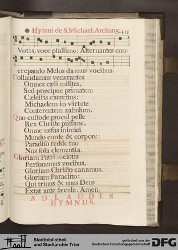 Hymni de S. Michael. Archang.
Votis, voce psallimus: Alternantes con-
crepando Melos damus vocibus.
Collaudamus venerantes
Omnes cæli milites,
Sed præcipue primatem
Cælestis exercitus:
Michaelem in virtute
Conterentem zabulum.
Quo custode procul pelle
Rex Christe piissime,
Omne nefas inimici
Mundo corde & corpore:
Paradiso redde tuo
Nos sola clementia.
Gloriam Patri melodis
Personemus vocibus,
Gloriam Christo canamus,
Gloriam Paraclito:
Qui trinus & unus Deus
Extat ante sæcula. Amen.
AD LAUDES
HYMNUS.
Stadtbibliothek
und Stadtarchiv Trier
Gefördert durch
Deutsche Forschungsgemeinschaft
DFG